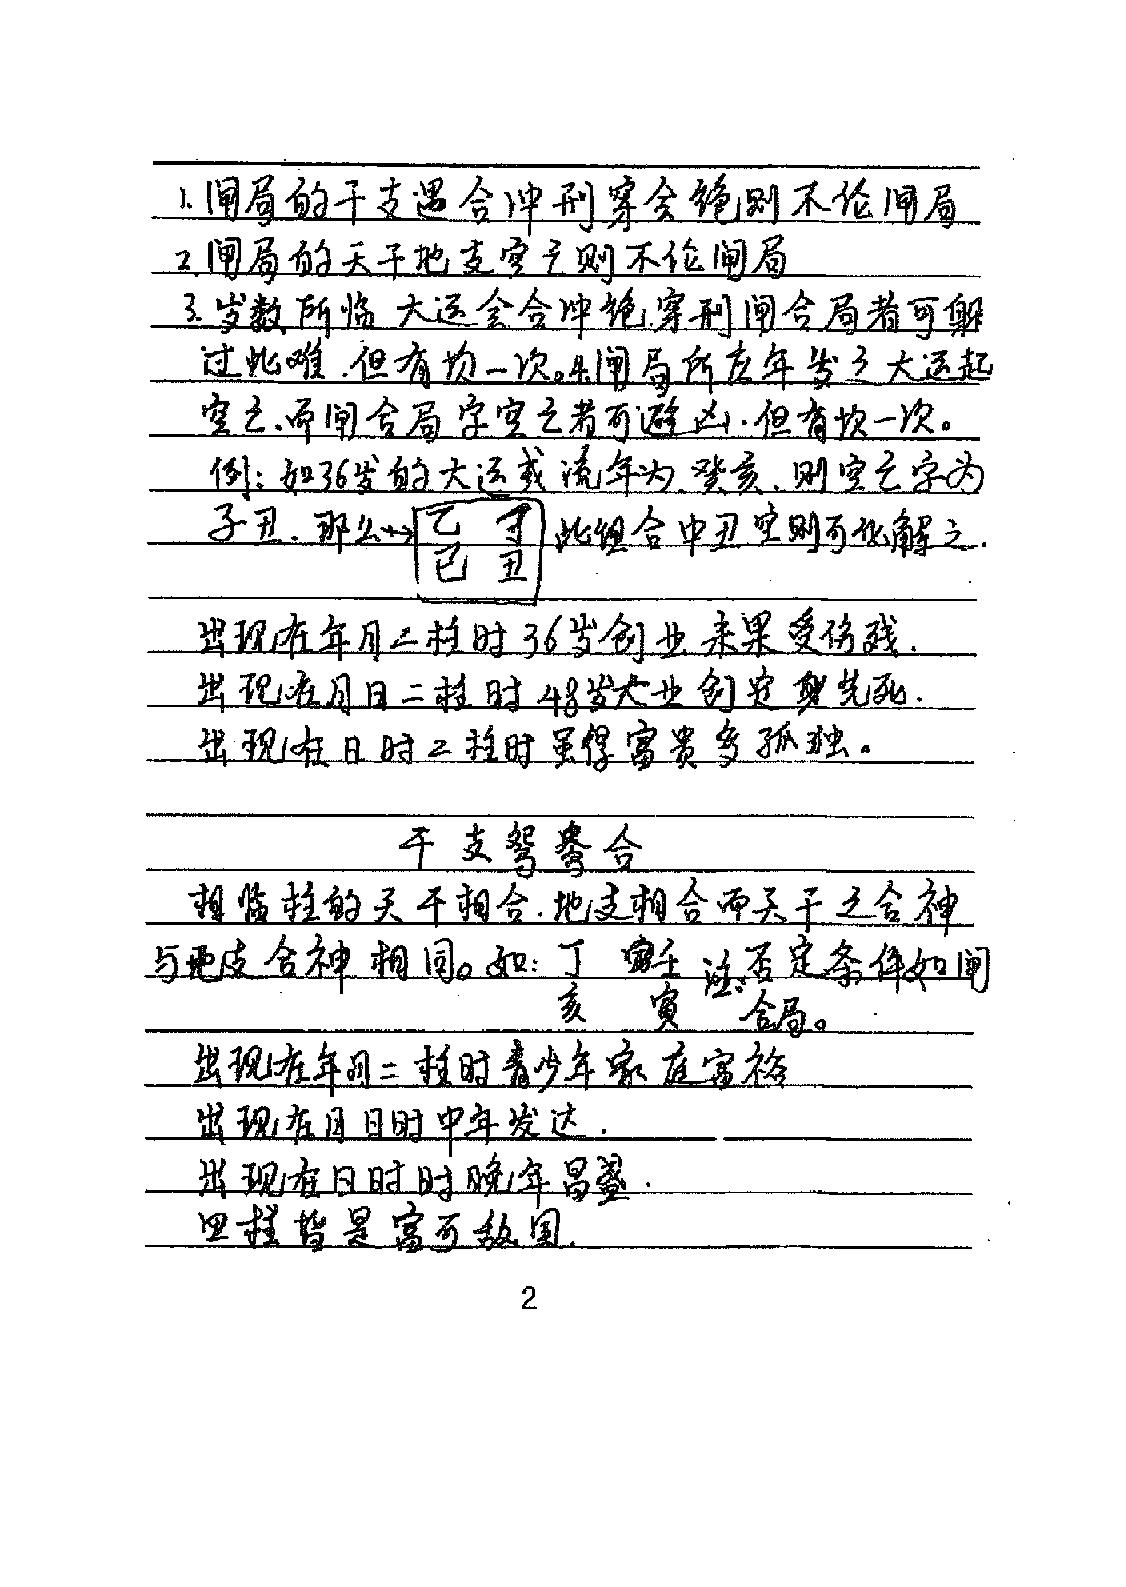 1.闸局的干支遇合冲刑穿会绝则不伦闸局
2.闸局的天干地支空亡则不伦闸局
3.岁数所临大运会合冲绝穿刑闸合局者可躲
过此难.但有坎一次。闸局所在年岁之大运起
空亡.而闸合局字空亡者可避凶.但有坎一次。
例:如36岁的大运或流年为.癸亥.则空亡字为
子丑.那么→ 乙 丁 此组合中丑空则可化解之.
巳 丑
出现在年月二柱时36岁创业未果受伤残.
出现在月日二柱时48岁大业创定身先死.
出现在日时二柱时虽得富贵多孤独。
干支鸳鸯合
相临柱的天干相合.地支相合而天干之合神
与地支合神相同。如: 丁 壬 注:否定条件如闸
亥 寅 合局。
出现在年月二柱时青少年家庭富裕
出现在月日时中年发达.
出现在日时时晚年昌盛.
四柱皆是富可敌国.
2